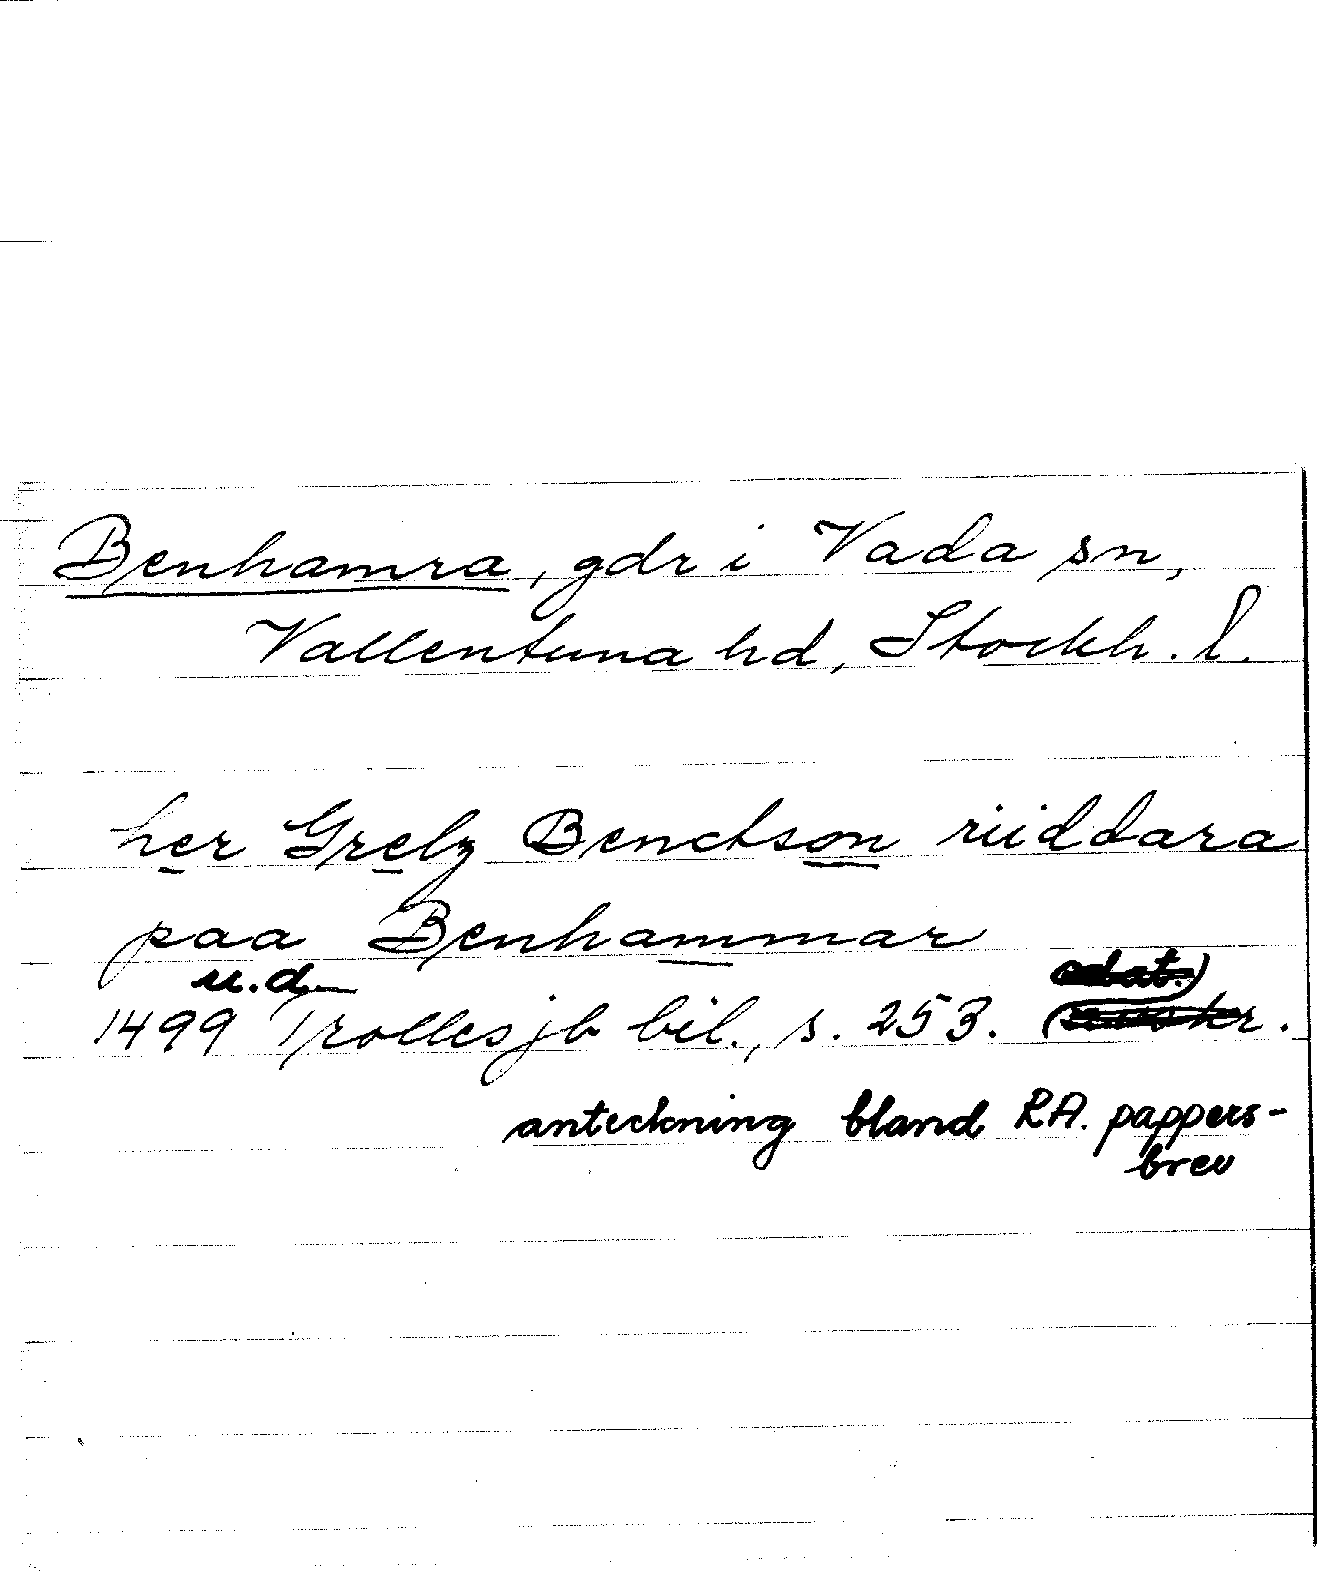 Benhamra, gdr i Vada sn,
Vallentuna hd, Stockh. l.
her Grelz Benctson riiddara
paa Benhammar
u.d.
1499 Trolles jb bil., s. 253.
anteckning bland RA. pappers-
brev